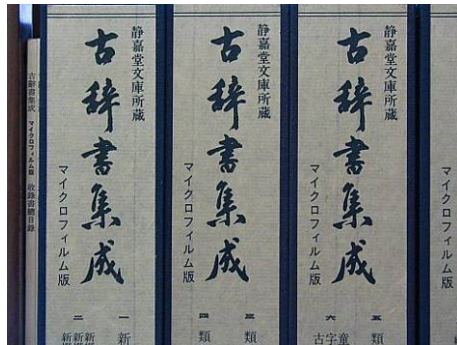 古辞書集成 マイクロフィルム版 収録書總目録
静嘉堂文庫所蔵
古辞書集成
マイクロフィルム版
一 新
二 新
静嘉堂文庫所蔵
古辞書集成
マイクロフィルム版
三 類
四 類
静嘉堂文庫所蔵
古辞書集成
マイクロフィルム版
五 類
六 古字童
マイク